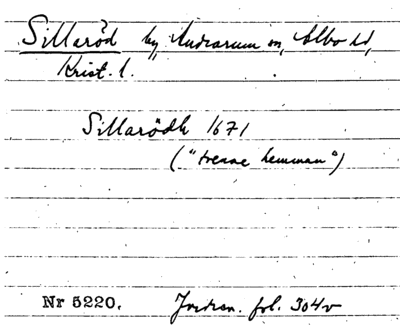 Sillaröd by, Andrarum sn, Albo hd,
Krist. l.
Sillarödh 1671
("trenne hemman")
Nr 5220. Jordren. fol. 304v